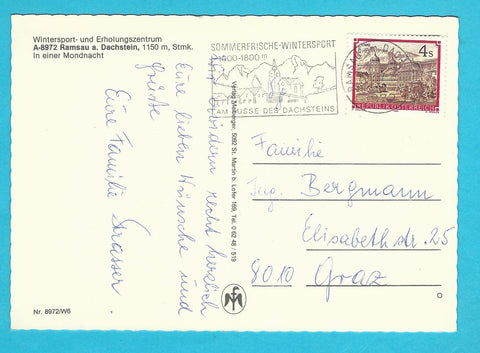 Wintersport- und Erholungszentrum
A-8972 Ramsau a. Dachstein, 1150 m, Stmk.
In einer Mondnacht
SOMMERFRISCHE-WINTERSPORT
1100-1800 m
AM FUSSE DES DACHSTEINS
RAMSAU AM DACH
4s
REPUBLIK ÖSTERREICH
Wir erwidern recht herzlich
Eure lieben Wünsche und
Grüße
Eure Familie Strasser
5092 St. Martin b. Lofer 169, Tel. 0 62 48 / 519
Familie
Ing. Bergmann
Elisabethstr. 25
8010 Graz
Nr. 8972/W6